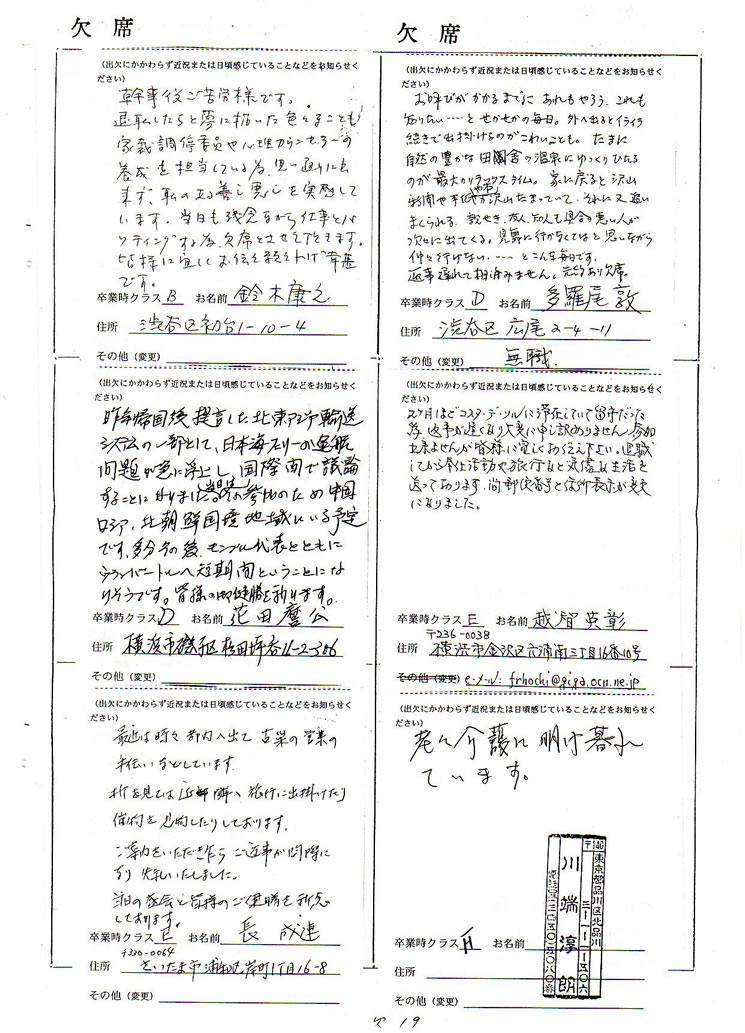 欠 席
(出欠にかかわらず近況または日頃感じていることなどをお知らせく
ださい)
幹事役ご苦労様です。
退転したらと夢に描いた色々なことも
家裁調停委員や心理カウンセラーの
養成を担当している為、思い通りに出
来ず、私の
います。当日も残念ながら仕事とバ
ッティングする為、欠席とさせて頂きます。
皆様に宜しくお伝え頂ければ幸甚
です。
卒業時クラス B お名前 鈴木康之
住所 渋谷区初台1-10-4
その他(変更)
(出欠にかかわらず近況または日頃感じていることなどをお知らせく
ださい)
昨年帰国後提言した北東アジア輸送
システムの一部として、日本海フェリーの運航
問題が急に浮上し、国際間で議論
することになりました。当日はその参加のため中国
ロシア、北朝鮮国境地域にいる予定
です。多分その後、モンゴル代表とともに
ウランバートルへ短期間ということにな
りそうです。皆様の御健勝を祈ります。
卒業時クラス D お名前 花田麿公
住所 横浜市磯子区杉田坪呑11-2-306
その他(変更)
(出欠にかかわらず近況または日頃感じていることなどをお知らせく
ださい)
最近は時々都内へ出て 古巣の営業の
手伝いなどしています。
折を見ては「近郊隣へ旅行に出掛けた」
しております。
ご案内をいただきながら ご返事が間際に
なり 失礼いたしました。
当日の盛会と皆様のご健勝を祈念
しております。
卒業時クラス E お名前 長 成連
〒330-0064
住所 さいたま市浦和区岸町1丁目16-8
その他(変更)
欠 席
(出欠にかかわらず近況または日頃感じていることなどをお知らせく
ださい)
お呼びがかかるまでに あれもやろう、これも
知りない……とせかせかの毎日。外へ出るとイライラ
続きで出掛けるのがこわいことも。たまに
自然の豊かな田園舎の温泉にゆっくりひたる
のが最大のリラックスタイム。家に戻ると沢山
新聞や手紙が沢山たまっていて、それに又追い
まくられる。親せき、友人、知人も具合の悪い人が
次々に出てくる。見舞に行かなくてはと思いながら
仲々行けない……とこんな毎日です。
返事遅れて相済みません。先約あり欠席。
卒業時クラス D お名前 多羅尾敦
住所 渋谷区 広尾2-4-11
その他(変更) 無職
(出欠にかかわらず近況または日頃感じていることなどをお知らせく
ださい)
2ヶ月ほどコスタ・デ・ソルに滞在していて留守だった
為、返事が遅くなり大変に申し訳ありません。参加
出来ませんが皆様に宜しくお伝え下さい。退職
してから奉仕活動や旅行など気儘な生活を
送っております。尚郵便番号と住所表示が変更
になりました。
卒業時クラス E お名前 越智英彰
〒236-0038
住所 横浜市金沢区六浦南三丁目16番10号
その他(変更) e-メール: frhochi@giga.ocn.ne.jp
(出欠にかかわらず近況または日頃感じていることなどをお知らせく
ださい)
老々介護に明け暮れ
ています。
〒140 東京都品川区北品川
三-一一-一-五〇六
川端淳郎
卒業時クラス H お名前
住所
その他(変更)
欠 19